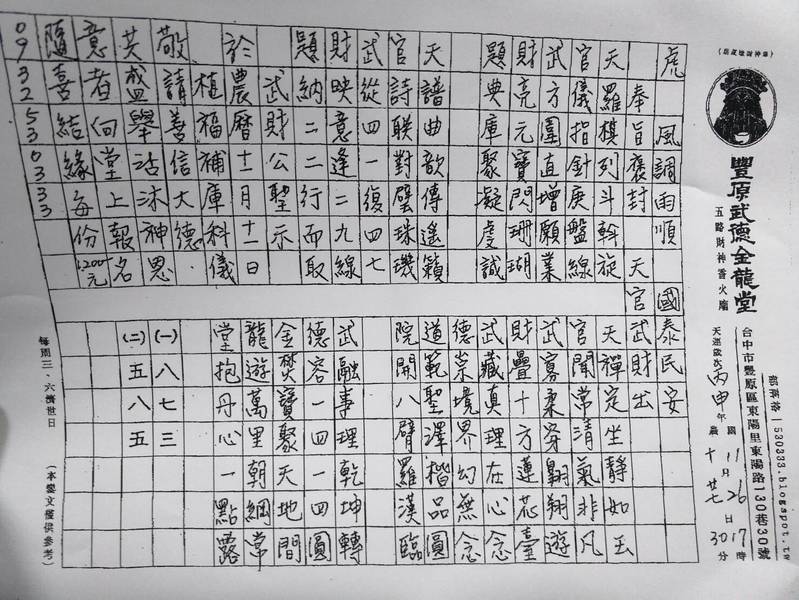 豐原武德金龍堂
五路財神香火廟
部落格 530333.blogspot.tw
台中市豐原區東陽里東陽路130巷30號
天運歲次丙申年 國11月26日17時30分 農十廿
虎 風調雨順 國泰民安
奉旨褒封 天官武財出
天羅棋列斗斡旋
官儀指針庚盤線
武方圍直增願業
財亮元寶閃珊瑚
題典庫聚凝虔誠
天譜曲歆傳遙籟
官詩聯對璧珠璣
武從四一復四七
財映意逢二九線
題納二二行而取
武財公聖示
於農曆十一月十一日
植福補庫科儀
敬請善信大德
共盛舉沾沐神恩
意者向堂上報名
隨喜結緣每份1,200元
0932530333
天禪定坐靜如玉
官聞常清氣非凡
武寡柔芬翱翔遊
財疊十方蓮花臺
武藏真理在心念
德崇境界幻無念
道範聖澤楷品圓
院開八臂羅漢臨
武融事理乾坤轉
德容一四一四圓
金焚寶聚天地間
龍遊萬里朝綱常
堂抱丹心一點露
(一)八七三
(二)五八五
每周三、六濟世日 (本鸞文僅供參考)